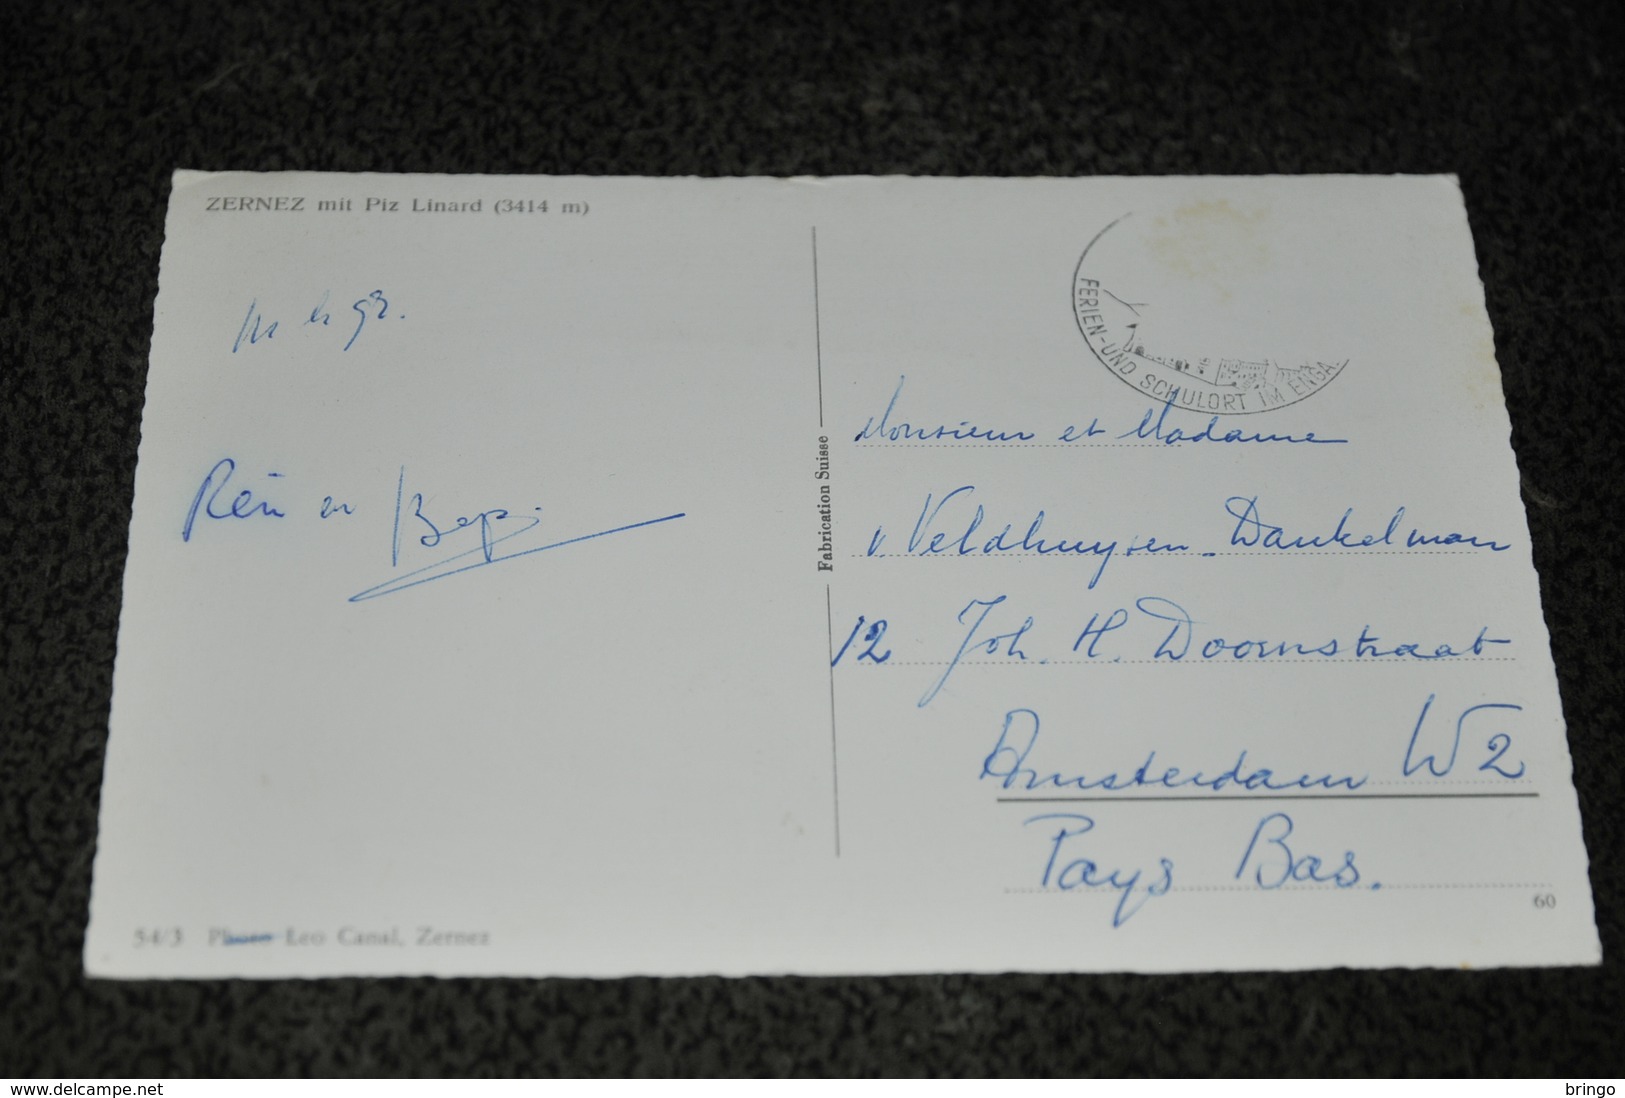 ZERNEZ mit Piz Linard (3414 m)
FERIEN-UND SCHULORT IM ENGA.
en Bep.
Fabrication Suisse
Monsieur et Madame
v. Veldhuysen - Dankelman
12 Joh. H. Doornstraat
Amsterdam W2
Pays Bas.
60
54/3 Photo Leo Canal, Zernez
www.delcampe.net
bringo